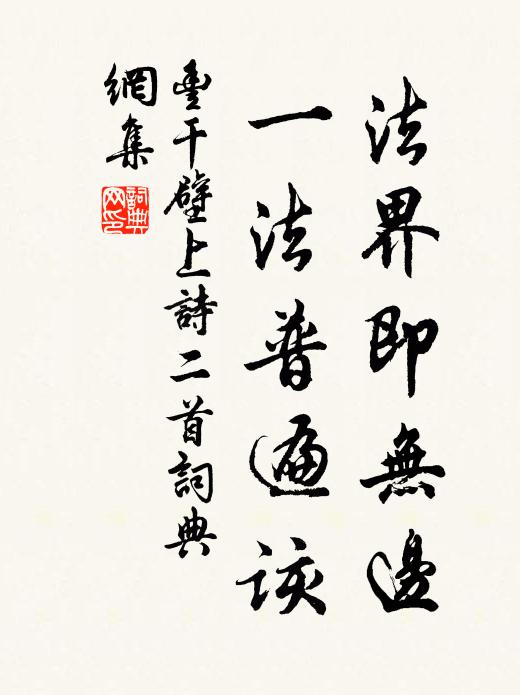 法界即無邊
一法普遍該
豐干壁上詩二首詞典
網集
詞典網印